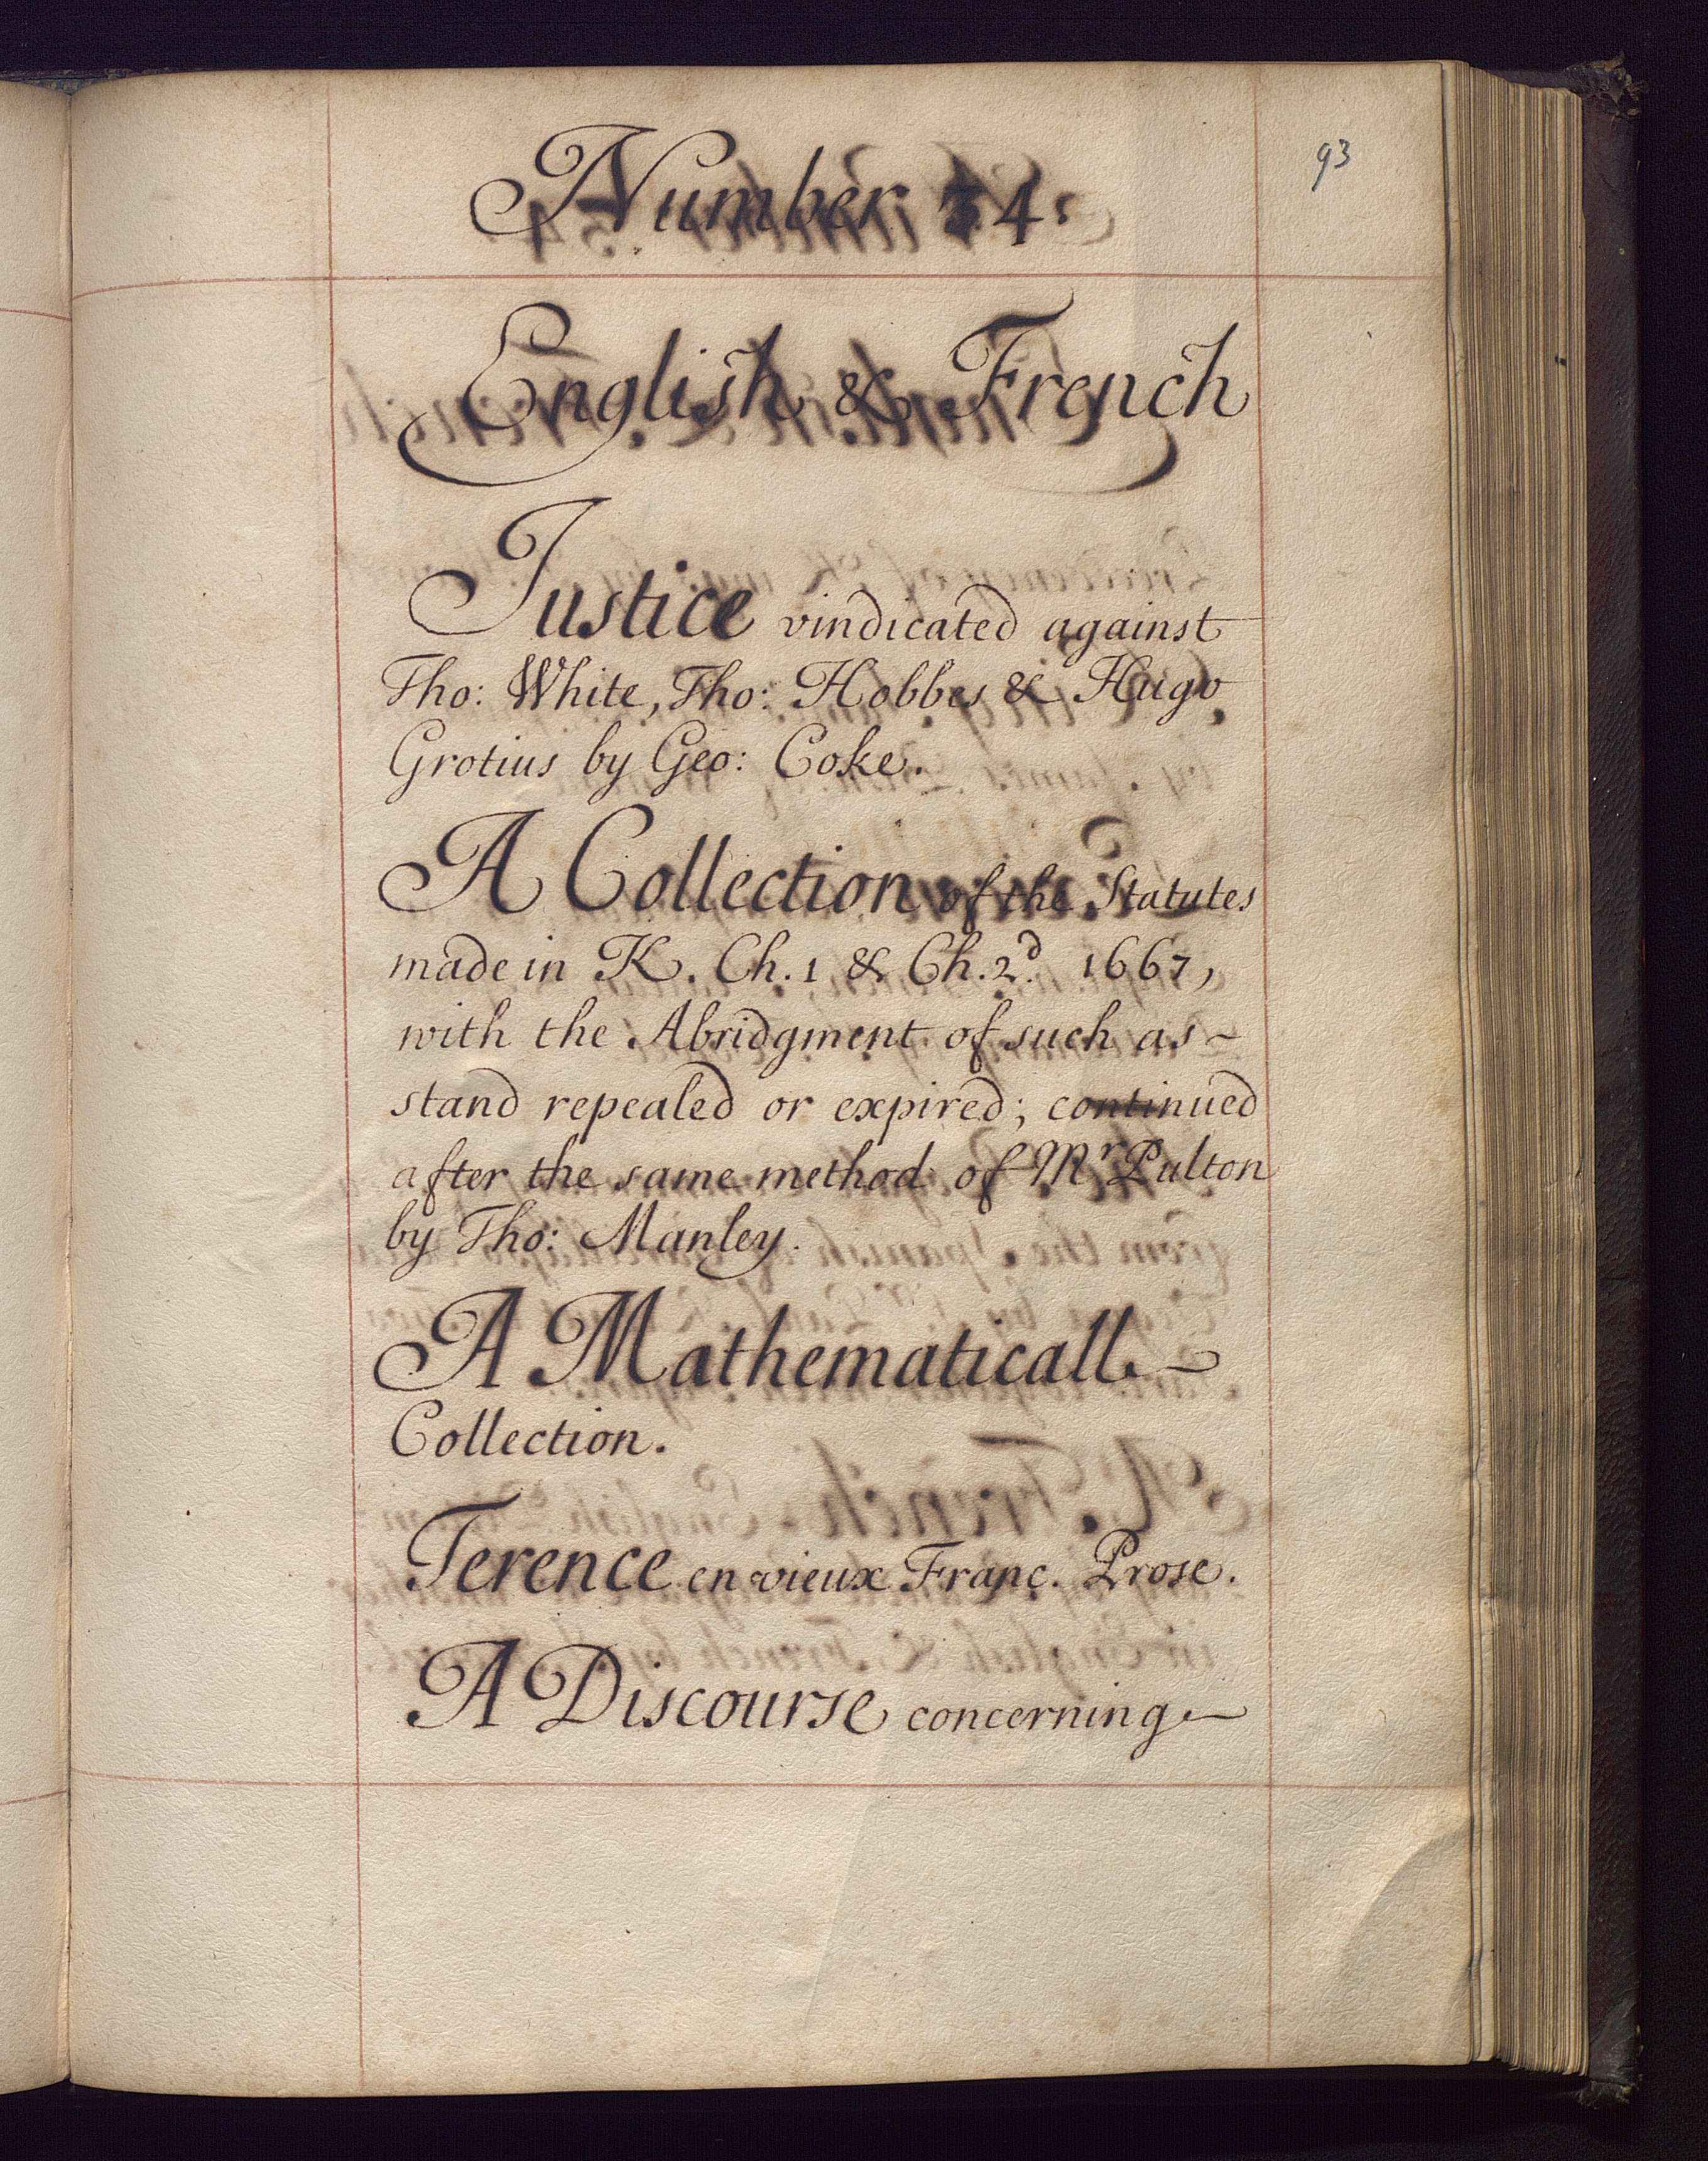 93
Number
English & French
Justice vindicated against
Tho: White, Tho: Hobbes & Hugo
Grotius by Geo: Coke.
A Collection of the Statutes
made in K. Ch. 1 & Ch. 2d. 1667,
with the Abridgment of such as ~
stand repealed or expired; continued
after the same method of Mr Pulton
by Tho: Manley.
A Mathematicall ~
Collection.
Terence en vieux Franc. Prose.
A Discourse concerning ~